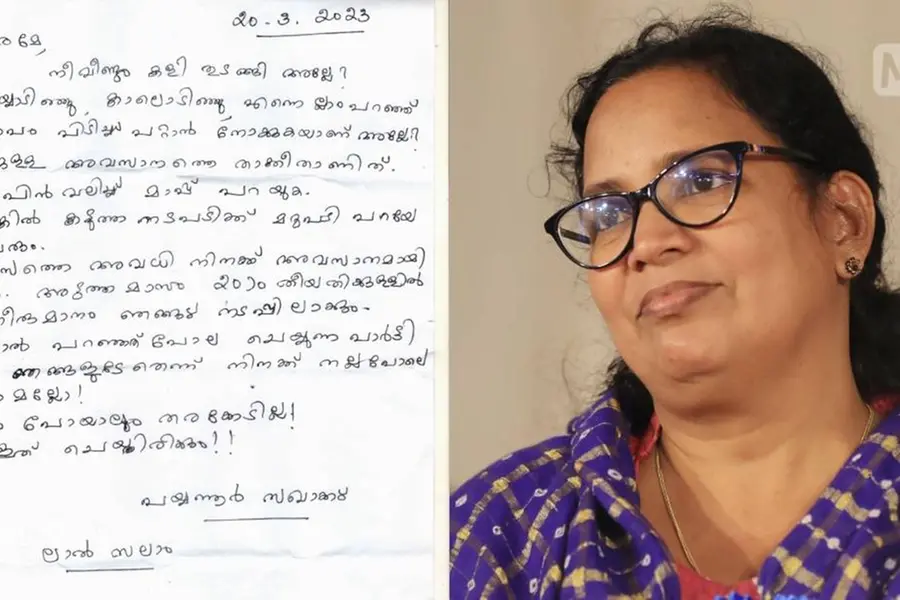 20-3. 2023
രമേ,
നീ വീണ്ടും കളി തുടങ്ങി അല്ലേ?
കാലൊടിഞ്ഞു എന്നെല്ലാം പറഞ്ഞ്
പിടിച്ചു പറ്റാൻ നോക്കുകയാണ് അല്ലേ?
അവസാനത്തെ താക്കീതാണിത്.
പിൻവലിച്ച് മാപ്പ് പറയുക.
കടുത്ത നടപടിക്ക് മറുപടി പറയേ
വരും.
അവധി നിനക്ക് അവസാനമായി
അടുത്ത മാസം 20ാം തീയതിക്കുള്ളിൽ
തീരുമാനം ഞങ്ങൾ നടപ്പിലാക്കും.
പറഞ്ഞത് പോലെ ചെയ്യുന്ന പാർട്ടി
ഞങ്ങളുടേതെന്ന് നിനക്ക് നല്ലപോലെ
മല്ലോ!
പോയാലും തരക്കേടില്ല!
ഇത് ചെയ്തിരിക്കും!!
പയ്യന്നൂർ സഖാക്കൾ
ലാൽ സലാം
M